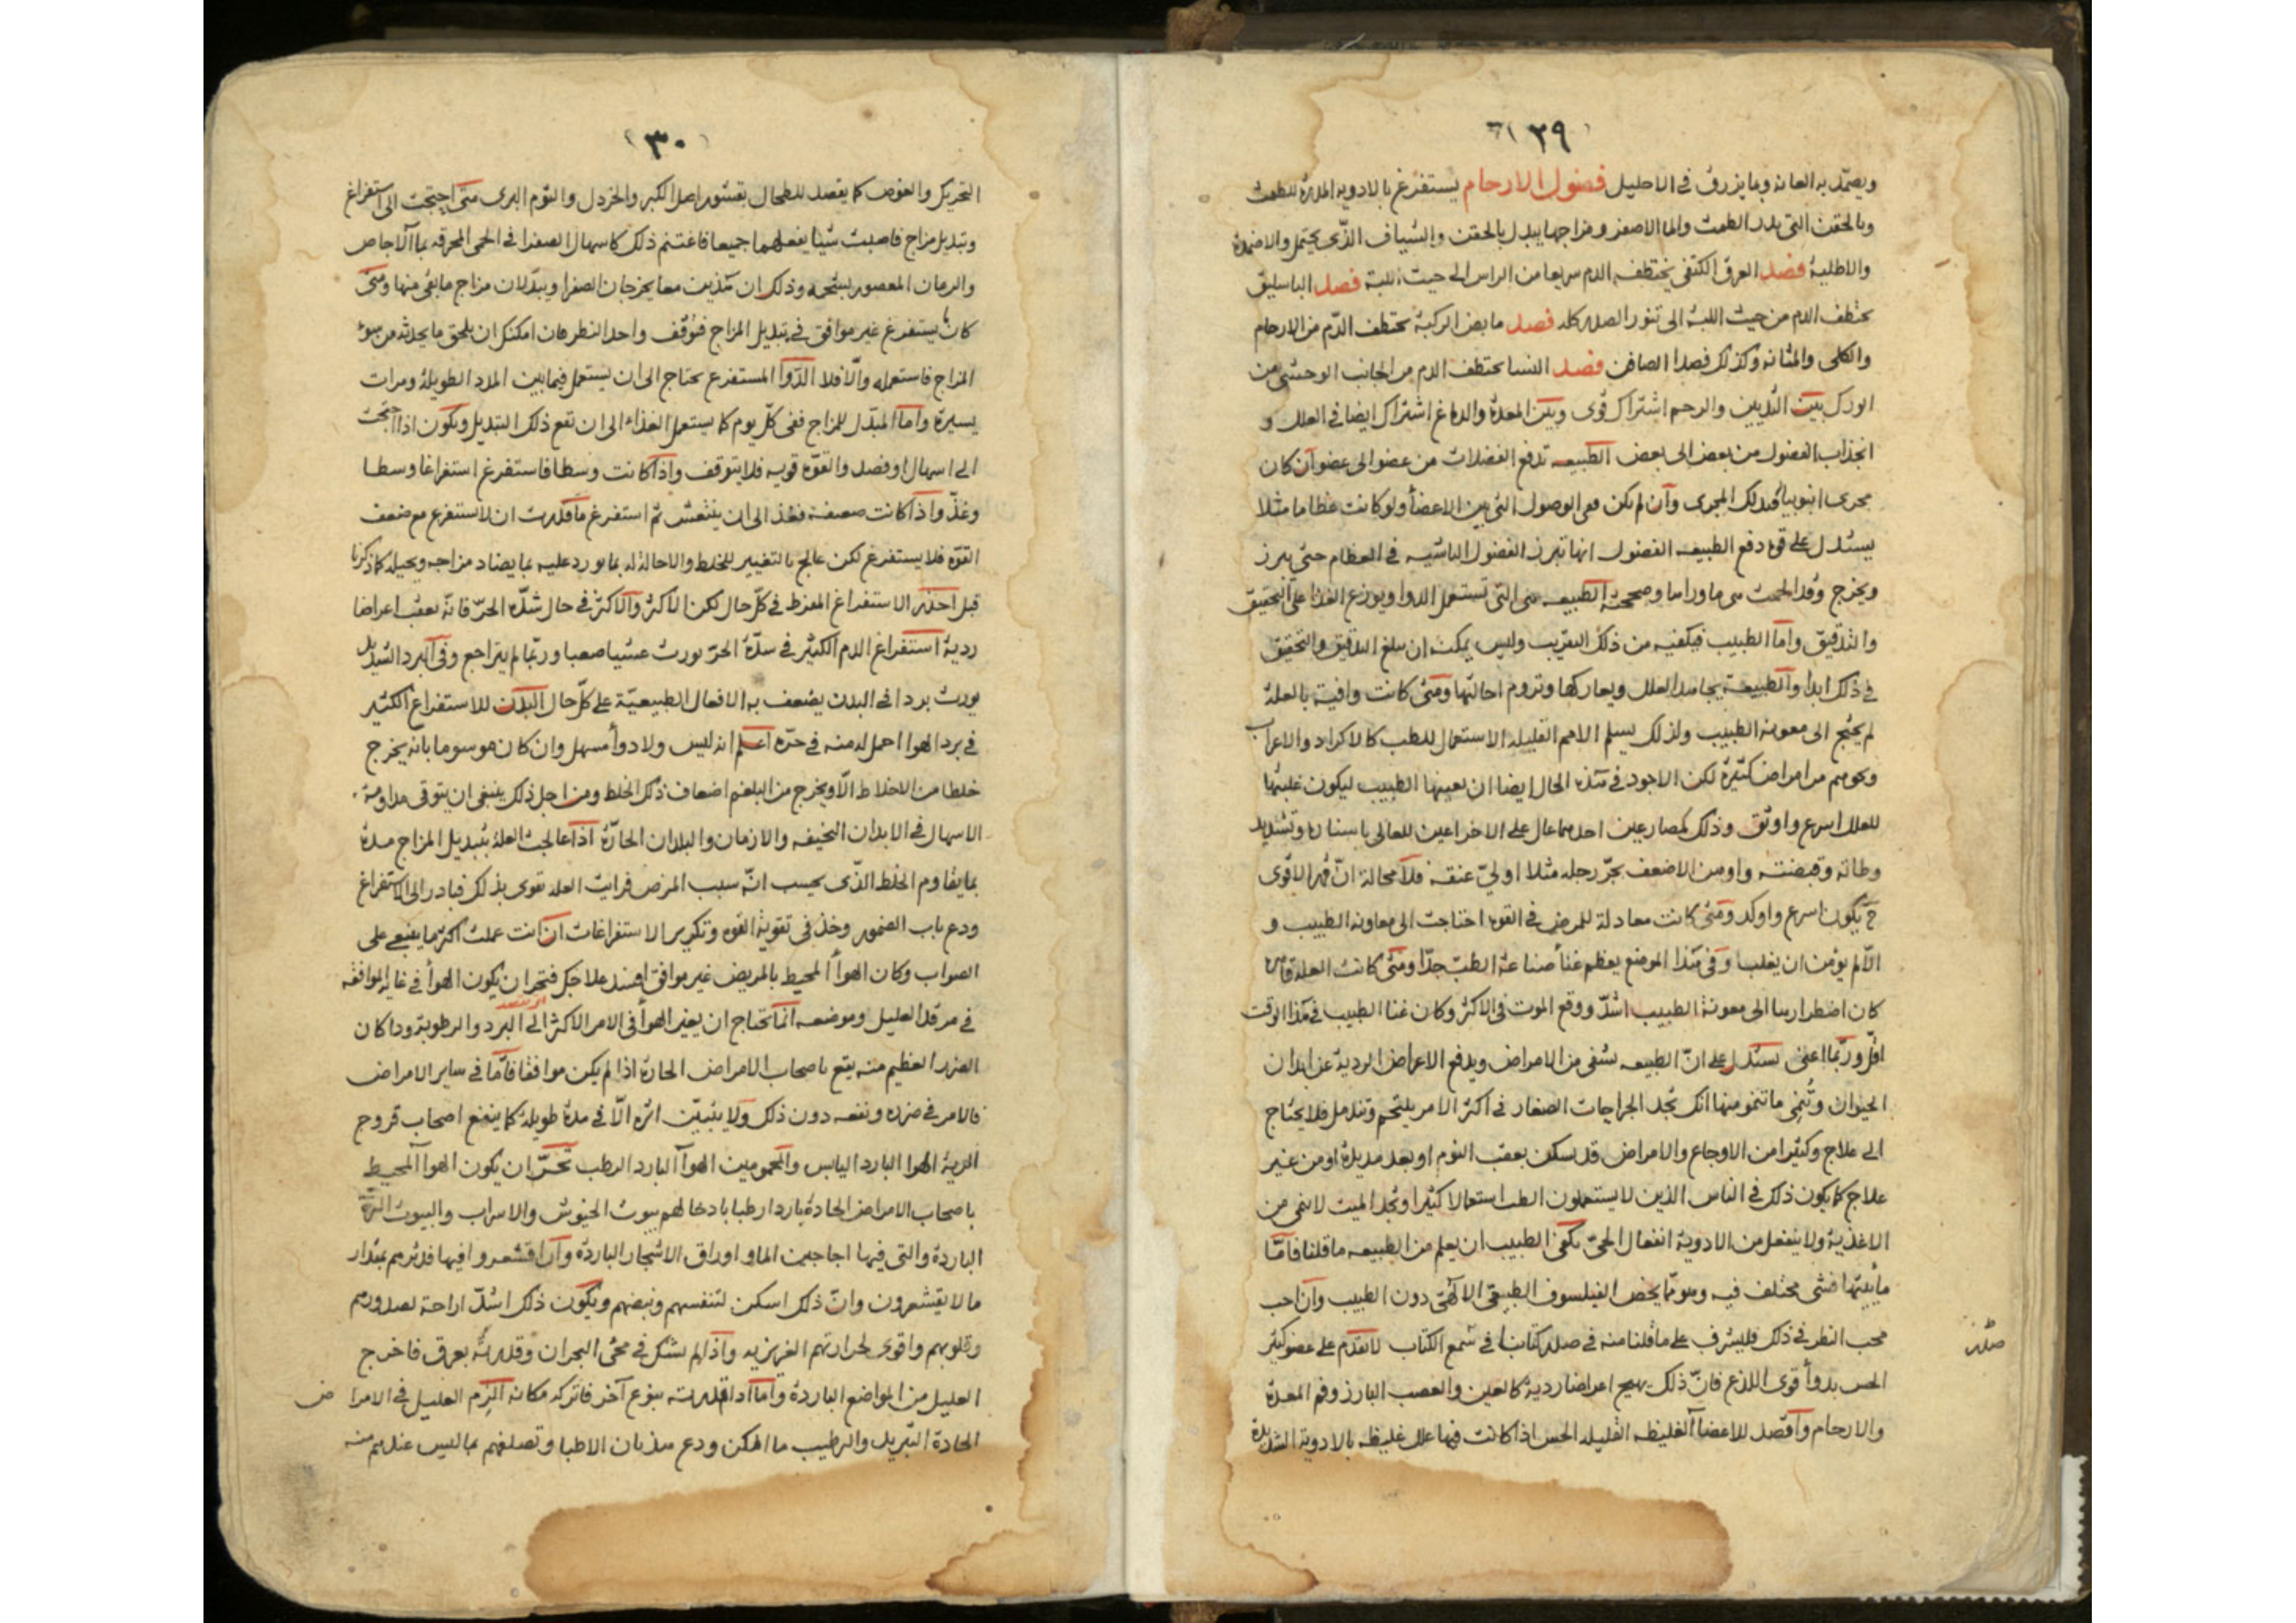 ٢٩
ويضمد به العانة وبما يزرق في الاحليل فضول الارحام يستفرغ بالادوية المدرة للطمث
وبالحقن التي تدر الطمث واما الاصفر ومزاجها يبدل بالحقن والشياف الذي يحتمل والاضمدة
والاطلية فصد العرق الكتفي يختطف الدم سريعا من الراس الى حيث اللبة فصد الباسليق
يختطف الدم من حيث اللبة الى تنور الصدر كله فصد مابض الركبة يختطف الدم من الارحام
والكلى والمثانة وكذلك فصد الصافن فصد النسا يختطف الدم من الجانب الوحشي من
الورك بين الثديين والرحم اشتراك قوى وبين المعدة والدماغ اشتراك ايضا في العلل و
انجذاب الفضول من بعض الى بعض الطبيعه تدفع الفضلات من عضو الى عضو ان كان
مجرى انبوبيا فبذلك المجرى وان لم يكن فمن الوصول التي بين الاعضأ ولو كانت عظاما مثلا
يستدل على قوة دفع الطبيعه الفضول انها تبرز الفضول الناشبه في العظام حتى يبرز
ويخرج الطبيعه هي التي تستعمل الدوا ويوزع الغذا على التحقيق
والتدقيق واما الطبيب فيكفيه من ذلك التقريب وليس يمكن ان يبلغ التدقيق والتحقيق
في ذلك ابدا والطبيعة يجاهد العلل ويعاركها وتروم احالتها ومتى كانت وافية بالعلة
لم يحتج الى معونة الطبيب ولذلك يسلم الامم القليلة الاستعمال للطب كالاكراد والاعراب
ونحوهم من امراض كثيرة لكن الاجود في هذه الحال ايضا ان يعينها الطبيب ليكون غلبتها
للعلل اسرع واوثق وذلك كمصارعين احدهما عال على الاخر اعين للعالى باسناده وتشديد
وطاته وقبضته واوهن الاضعف بجر رجله مثلا او لي عنقه فلا محالة ان قهر الاقوى
ح يكون اسرع واوكد ومتى كانت معادلة للمرض في القوة احتاجت الى معاونة الطبيب و
الا لم يؤمن ان يغلبا وفي هذا الموضع يعظم غنأ صناعة الطب جدا ومتى كانت العلة قاهرة
كان اضطرارها الى معونة الطبيب اشد ووقع الموت في الاكثر وكان غنا الطبيب في هذا الوقت
اقل وربما اعنى يستدل على ان الطبيعه تشفى من الامراض ويدفع الاعراض الردية عن ابدان
الحيوان وتنمى ما تنمو منها انك تجد الجراحات الصغار في اكثر الامر يلتحم وتندمل فلا يحتاج
الى علاج وكثيرا من الاوجاع والامراض قد يسكن بعقب النوم او بعد مديدة او من غير
علاج كما يكون ذلك في الناس الذين لا يستعملون الطب استعمالا كثيرا وتجد الميت لا ينمى من
الاغذية ولا ينفعل من الادوية انفعال الحي يكفى الطبيب ان يعلم من الطبيعه ما قلنا فاما
مأيتها فشى مختلف فيه وهو مما يخص الفيلسوف الطبيعى الالهى دون الطبيب وان احب
محب النظر في ذلك فليشرف على ما قلنا منه في صدر كتابنا في سمع الكتاب لا تقدم على عضو كثير
الحس بدوأ قوى اللذع فان ذلك يهيج اعراضا ردية كالعين والعصب البارز وفم المعدة
والارحام واقصد للاعضا الغليظه القليله الحس اذا كانت فيها علل غليظه بالادوية الشديدة
٣٠
التحريك والغوص كما يقصد للطحال بقشور اصل الكبر والخردل والثوم البرى متى احتجت الى استفراغ
وتبديل مزاج فاصبت شيا يفعلهما جميعا فاغتنم ذلك كاسهال الصفرا في الحمى المحرقه بماء الاجاص
والرمان المعصور بشحمه وذلك ان هذين معا يخرجان الصفرا ويبدلان مزاج ما بقى منها ومتى
كان ما يستفرغ غير موافق في تبديل المزاج فتوقف واجد النظر فان امكنك ان يلحق ما يحدثه من سوء
المزاج فاستعمله والا فلا الدوأ المستفرغ يحتاج الى ان يستعمل فيما بين المدد الطويلة ومرات
يسيرة واما المبدل للمزاج ففى كل يوم كما يستعمل الغذاء الى ان يقع ذلك التبديل ويكون اذا احتجت
الى اسهال او فصد والقوة قوية فلا يتوقف واذا كانت وسطا فاستفرغ استفراغا وسطا
وغذ واذا كانت ضعيفة فغذ الى ان ينتعش ثم استفرغ ما قدرت ان لا تستفرغ مع ضعف
القوة فلا يستفرغ لكن عالج بالتغيير للخلط والاحالة له بما يورد عليه بما يضاد مزاجه ويحيله كما ذكرنا
قبل احذر الاستفراغ المفرط في كل حال لكن الاكثر والاكثر في حال شدة الحر فانه يعقب اعراضا
ردية استفراغ الدم الكثير في شدة الحر يورث غشيا صعبا وربما لم يتراجع وفي البرد الشديد
يورث بردا في البدن يضعف به الافعال الطبيعية على كل حال البدن للاستفراغ الكثير
في برد الهوا احمل له منه في حره اعلم انه ليس ولا دوأ مسهل وان كان موسوما بانه يخرج
خلطا من الاخلاط الا ويخرج من البلغم اضعاف ذلك الخلط ومن اجل ذلك ينبغى ان يتوقى مداومة
الاسهال في الابدان النحيفه والازمان والبلدان الحارة اذا عالجت العلة بتبديل المزاج مدة
بما يقاوم الخلط الذى يحسب انه سبب المرض فرايت العله تقوى بذلك فبادر الى الاستفراغ
ودع باب الضمور وخذ في تقوية القوه وتكرير الاستفراغات ان انت عملت اكثر ما ينبغى على
الصواب وكان الهوأ المحيط بالمريض غير موافق افسد علاجك فتحر ان يكون الهوأ في غاية الموافقه
في مرقد العليل وموضعه انما تحتاج ان يغير الهوأ في الامر الاكثر الى البرد والرطوبة وذا كان
الضرر العظيم منه يقع باصحاب الامراض الحارة اذا لم يكن موافقا فاما في ساير الامراض
فالامر في ضرره ونفعه دون ذلك ولا يتبين اثره الا في مدة طويلة كما ينفع اصحاب قروح
الرية الهوا البارد اليابس والمحمومين الهوأ البارد الرطب تحر ان يكون الهوا المحيط
باصحاب الامراض الحادة باردا رطبا بادخالهم بيوت الخيوش والاسراب والبيوت
الباردة والتى فيها اجاجين الما واوراق الاشجار الباردة وان اقشعروا فيها فدثرهم بمقدار
ما لا يقشعرون وان ذلك اسكن لتنفسهم ونبضهم ويكون ذلك اشد اراحة لصدورهم
وقلوبهم واقوى لحرارتهم الغريزيه واذا لم تشك في مجى البحران وقدرته بعرق فاخرج
العليل من المواضع الباردة واما اذا قدرته بنوع آخر فاتركه مكانه الزم العليل في الامرا ض
الحادة التبريد والترطيب ما امكن ودع هذيان الاطبا وتصلفهم بما ليس عندهم منه